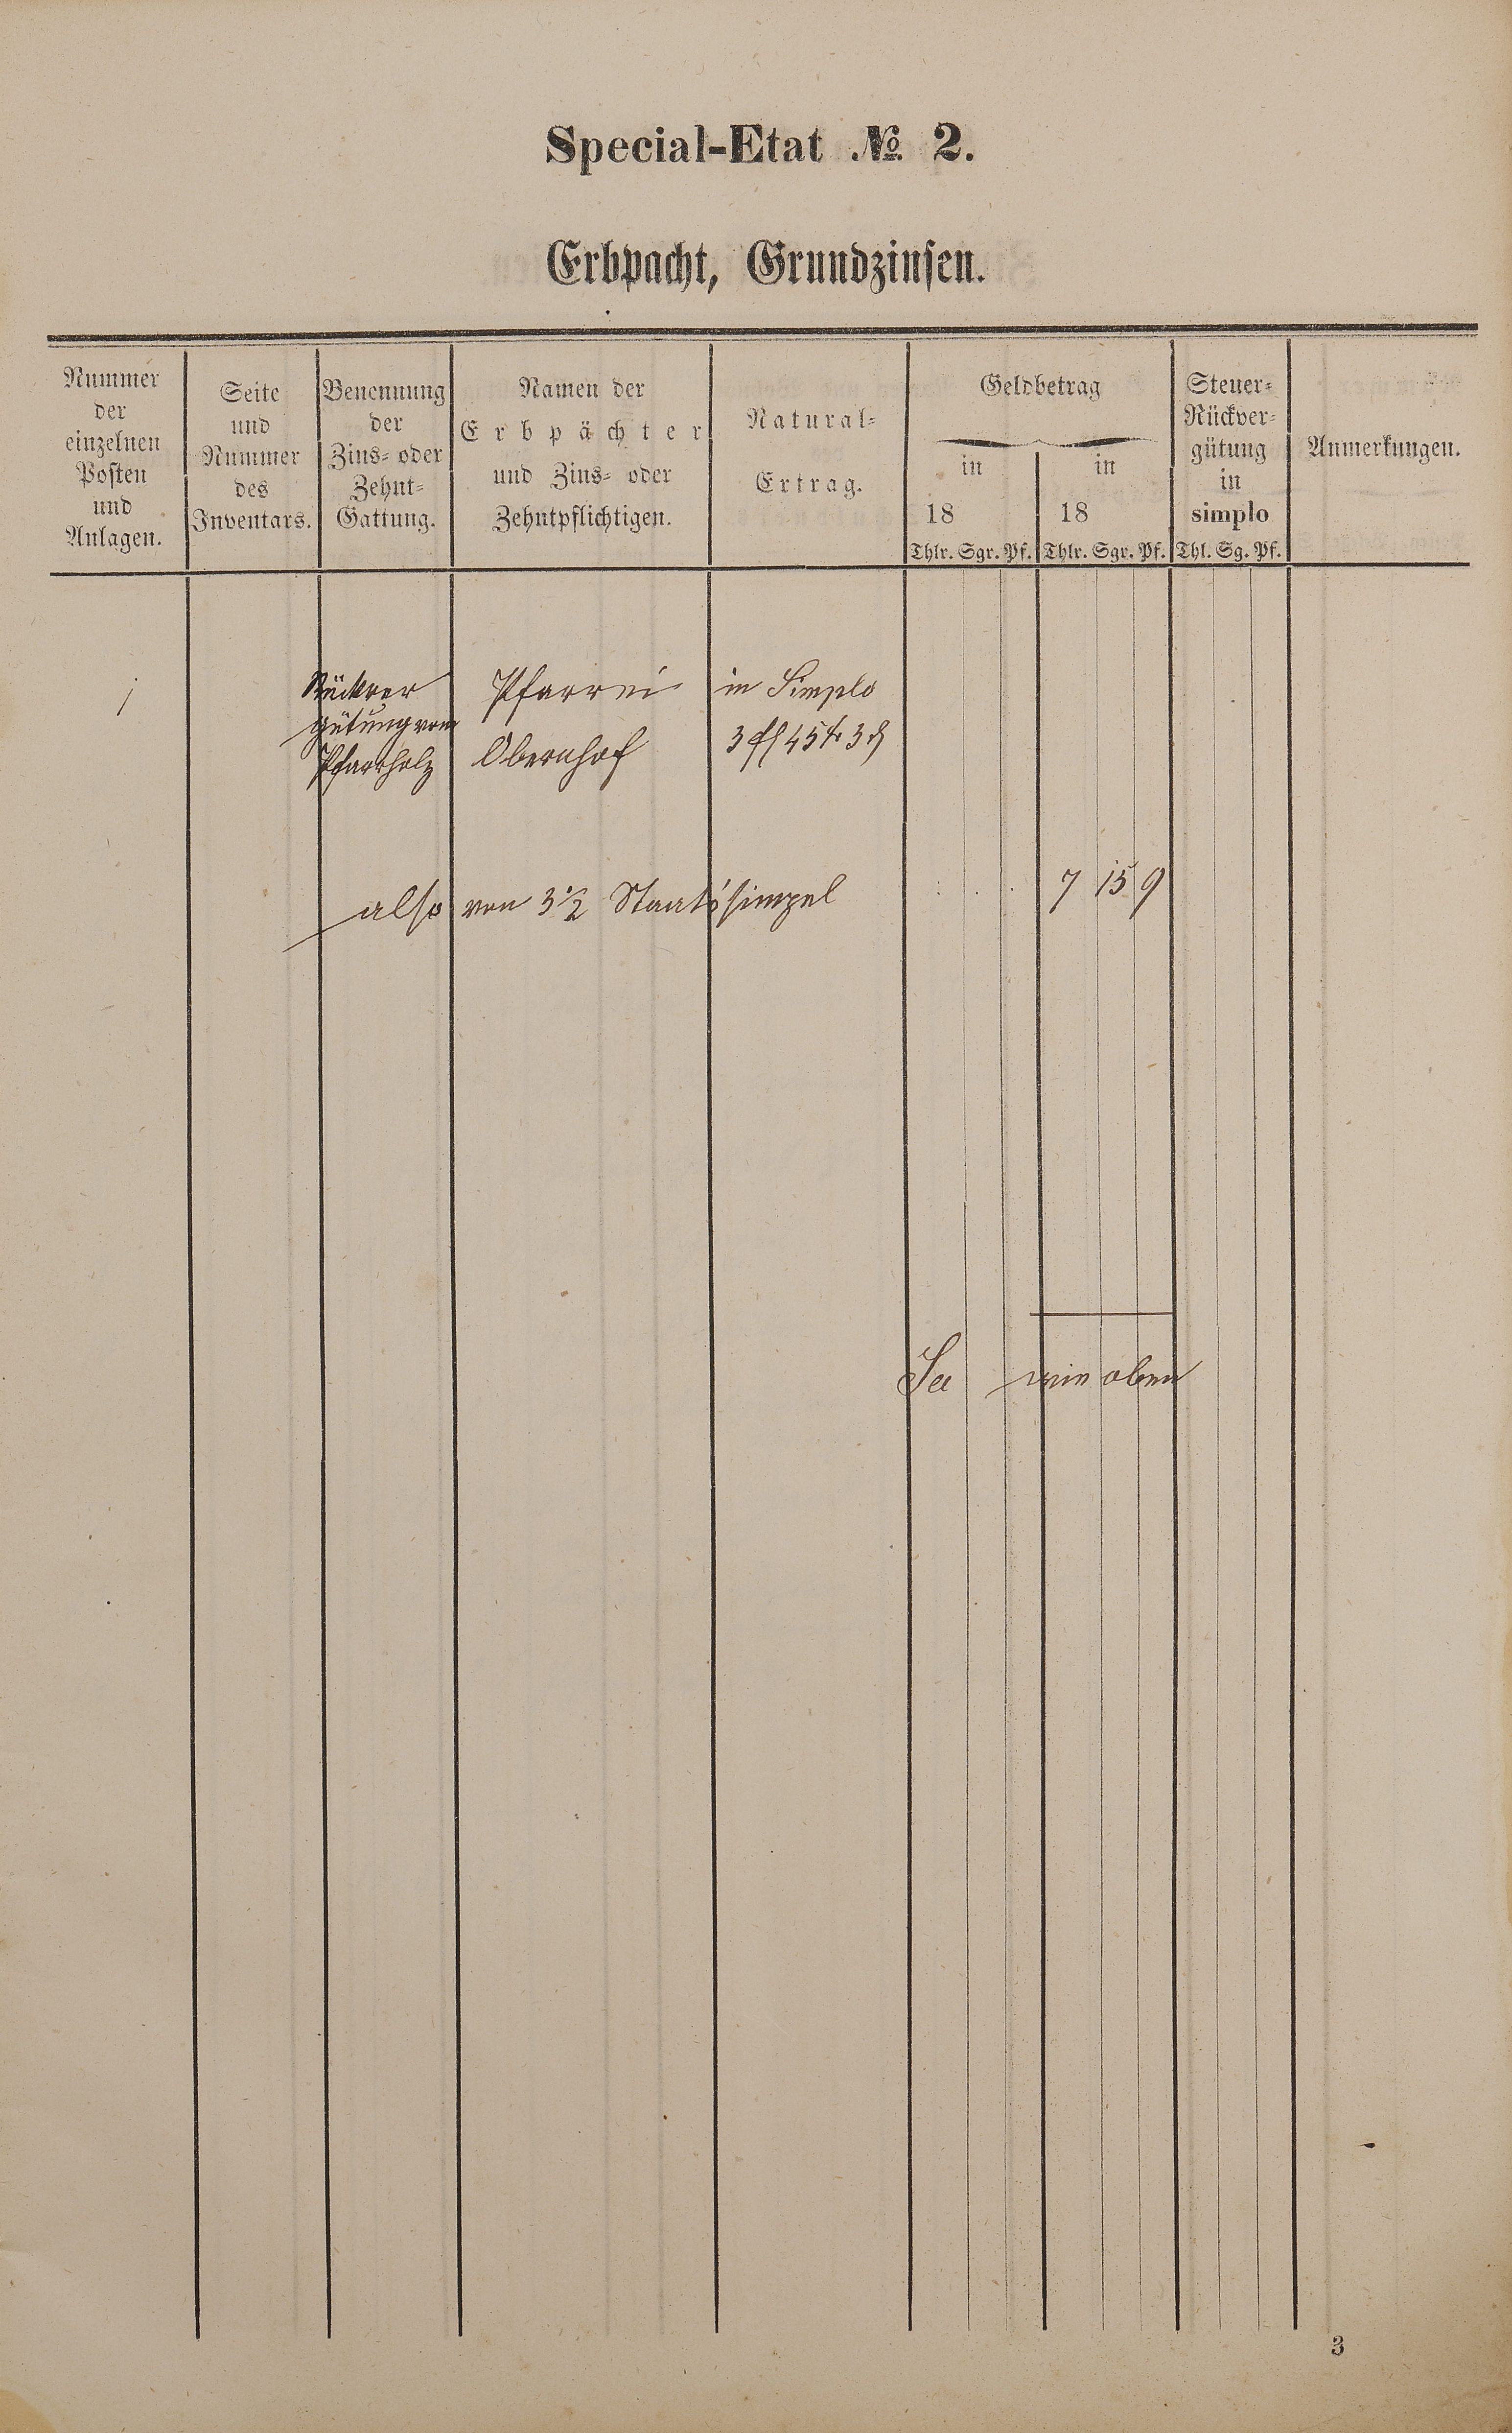 Special-Etat № 2.
Erbpacht, Grundzinsen.
Nummer
der
einzelnen
Posten
und
Anlagen.
Seite
und
Nummer
des
Inventars.
Benennung
der
Zins- oder
Zehnt-
Gattung.
Namen der
Erbpächter
und Zins- oder
Zehntpflichtigen.
Natural-
Ertrag.
Geldbetrag
in
18
in
18
Thlr. Sgr. Pf.
Thlr. Sgr. Pf.
Steuer-
Rückver-
gütung
in
simplo
Thl. Sg. Pf.
Anmerkungen.
1
Rückver
gütung vom
Pfarrholz
Pfarrei
Obernhof
in Simplo
3 fl 45 xr 3 ₰
also von 3 1/2 Staatssimpel
7 15 9
Sa wie oben
3